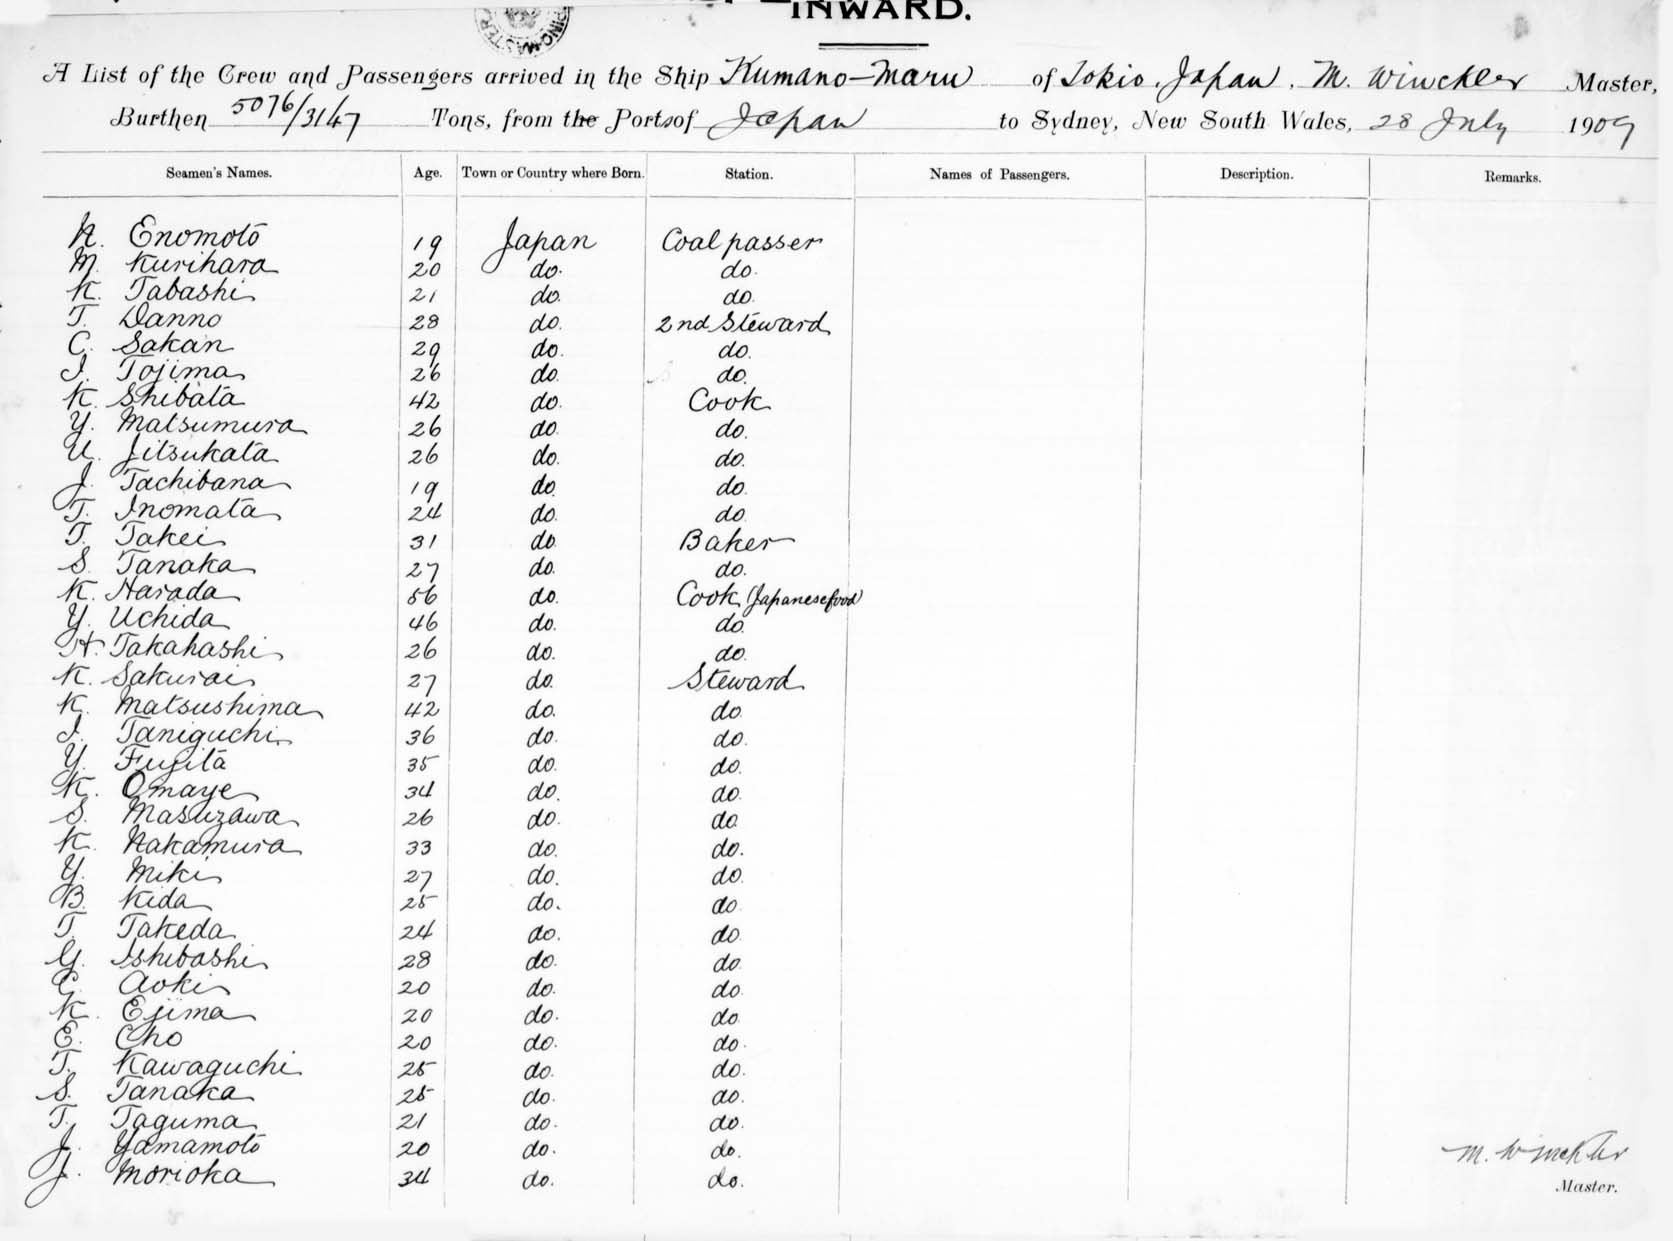 INWARD.
A List of the Crew and Passengers arrived in the Ship Kumano-Maru of Tokio, Japan, M. Winckler Master,
Burthen 5076/3147 Tons, from the Ports of Japan to Sydney, New South Wales, 28 July 1909
Seamen's Names. Age. Town or Country where Born. Station. Names of Passengers. Description. Remarks.
N. Enomoto 19 Japan Coal passer
M. Kurihara 20 do. do.
K. Tabashi 21 do. do.
T. Danno 28 do. 2nd Steward
C. Sakan 29 do. do.
I. Tojima 26 do. do.
K. Shibata 42 do. Cook
Y. Matsumura 26 do. do.
U. Jitsukata 26 do. do.
J. Tachibana 19 do. do.
T. Inomata 24 do. do.
T. Takei 31 do. Baker
S. Tanaka 27 do. do.
K. Harada 56 do. Cook (Japanese food)
Y. Uchida 46 do. do.
H. Takahashi 26 do. do.
K. Sakurai 27 do. Steward
K. Matsushima 42 do. do.
I. Taniguchi 36 do. do.
Y. Fujita 35 do. do.
K. Omaye 34 do. do.
S. Masuzawa 26 do. do.
K. Nakamura 33 do. do.
Y. Miki 27 do. do.
B. Kida 25 do. do.
T. Takeda 24 do. do.
G. Ishibashi 28 do. do.
C. Aoki 20 do. do.
K. Ejima 20 do. do.
E. Cho 20 do. do.
T. Kawaguchi 25 do. do.
S. Tanaka 25 do. do.
T. Taguma 21 do. do.
J. Yamamoto 20 do. do.
J. Morioka 34 do. do.
M. Winckler
Master.